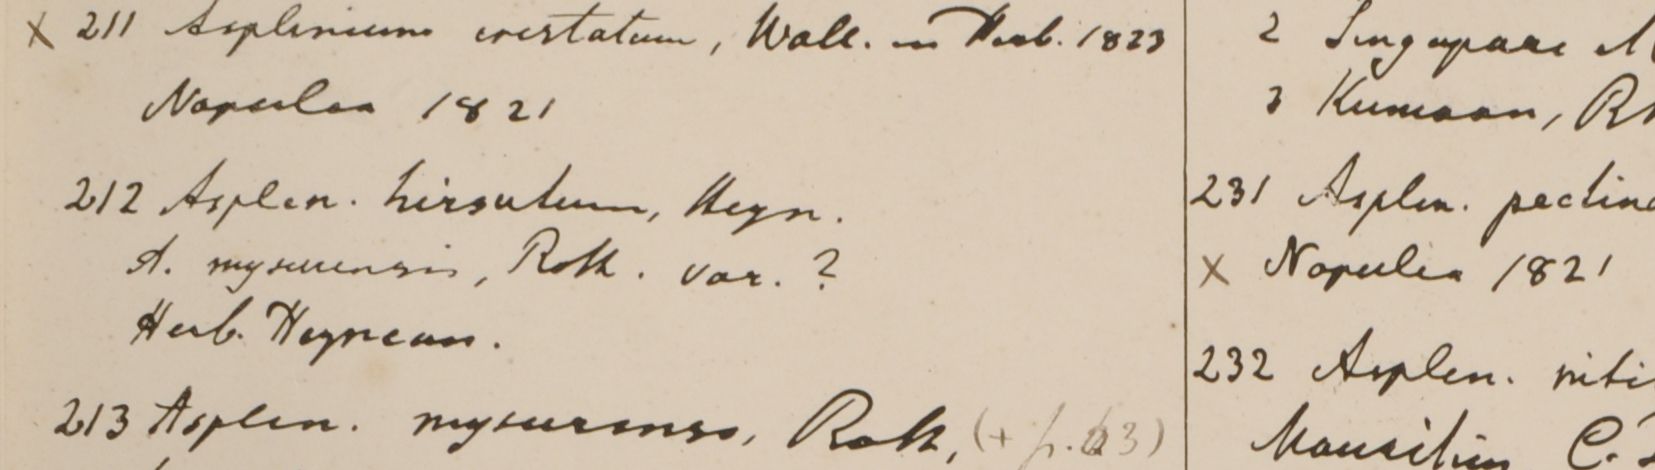 x 211 Asplenium cristatum, Wall. in Herb. 1823
Napulea 1821
212 Asplen. hirsutum, Heyn.
A. mysurensis, Roth. var. ?
Herb. Heynean.
213 Asplen. mysurense, Roth, (+ p. 63)
2 Singapore
3 Kumaon, R
231 Asplen. pectina
x Napulea 1821
232 Asplen. niti
Mauritius C.